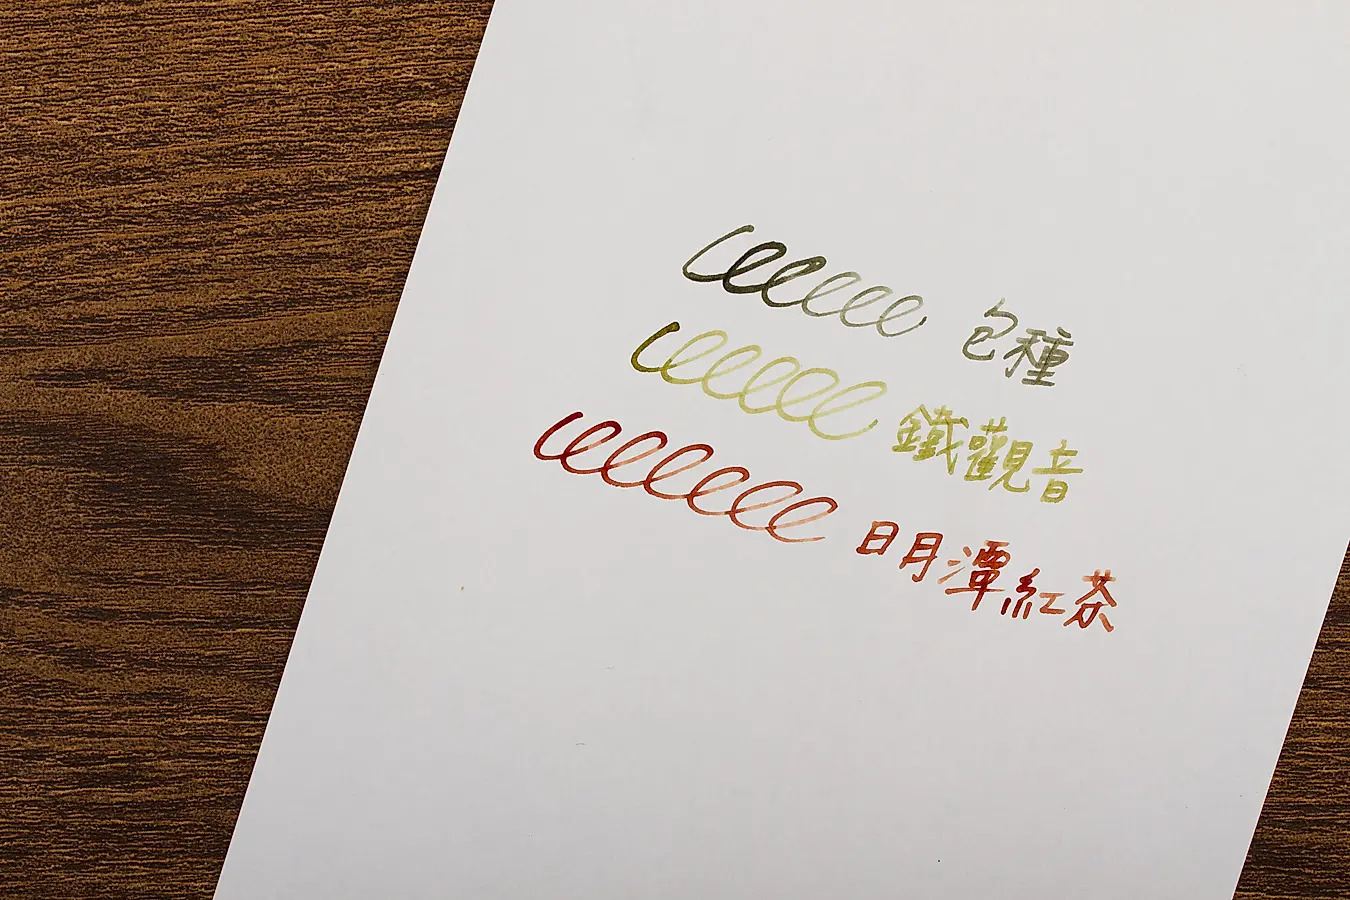 包種
鐵觀音
日月潭紅茶